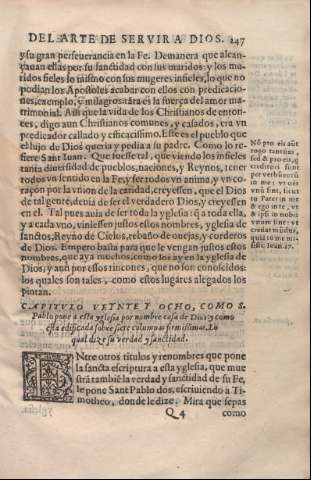 DEL ARTE DE SERVIR A DIOS. 247
y su gran perseuerancia en la Fe. Demanera que alcan-
çauan ellas por su sanctidad con sus maridos: y los ma
ridos fieles lo mismo con sus mugeres infieles, lo que no
podian los Apostoles acabar con ellos con predicacio-
nes, exemplo, y milagros: tãta es la fuerça del amor ma-
trimonial. Assi que la vida de los Christianos de enton-
ces, digo aun Christianos comunes, y casados, era vn
predicador callado y efficacissimo. Este es el pueblo que
el hijo de Dios queria y pedia a su padre. Como lo re-
fiere Sant Iuan. Que fuesse tal, que viendo los infieles
tanta diuersidad de pueblos, naciones, y Reynos, tener
todos vn sentido en la Fe, y ser todos vn animo, y vn co-
raçon por la vnion de la caridad, creyessen, que el Dios
de tal gente, deuia de ser el verdadero Dios, y creyessen
en el. Tal pues auia de ser toda la yglesia: q̃ a toda ella,
y a cada vno, viniessen justos estos nombres, yglesia de
sanctos, Reyno de Cielos, rebaño de ouejas, y corderos
de Dios. Empero basta para que le vengan justos estos
nombres, que aya muchos, como los ay en la yglesia de
Dios; y aun por essos rincones, que no son conoscidos
los quales son tales, como estos lugares alegados los
pintan.
CAPITVLO VEYNTE Y OCHO, COMO S.
Pablo pone a esta yglesia por nombre casa de Dios: y como
esta edificada sobre siete columnas firmissimas. Lo
qual dize su verdad y sanctidad.
ENtre otros titulos y renombres que pone
la sancta escriptura a esta yglesia, que mue
strã tambiẽ la verdad y sanctidad de su Fe,
le pone Sant Pablo dos, escriuiendo a Ti-
motheo, donde le dize. Mira que sepas
Q 4 como
Nõ pro eis aũt
rogo tantum,
sed & pro eis, q̃
credituri sunt
per verbũ eorũ
in me: vt oẽs
vnũ sint, sicut
tu Pater in me
& ego in te, vt
& ipsi in nobis
vnum sint: vt
credat mũdus,
quia tu me mi-
sisti. Ioan. 17.